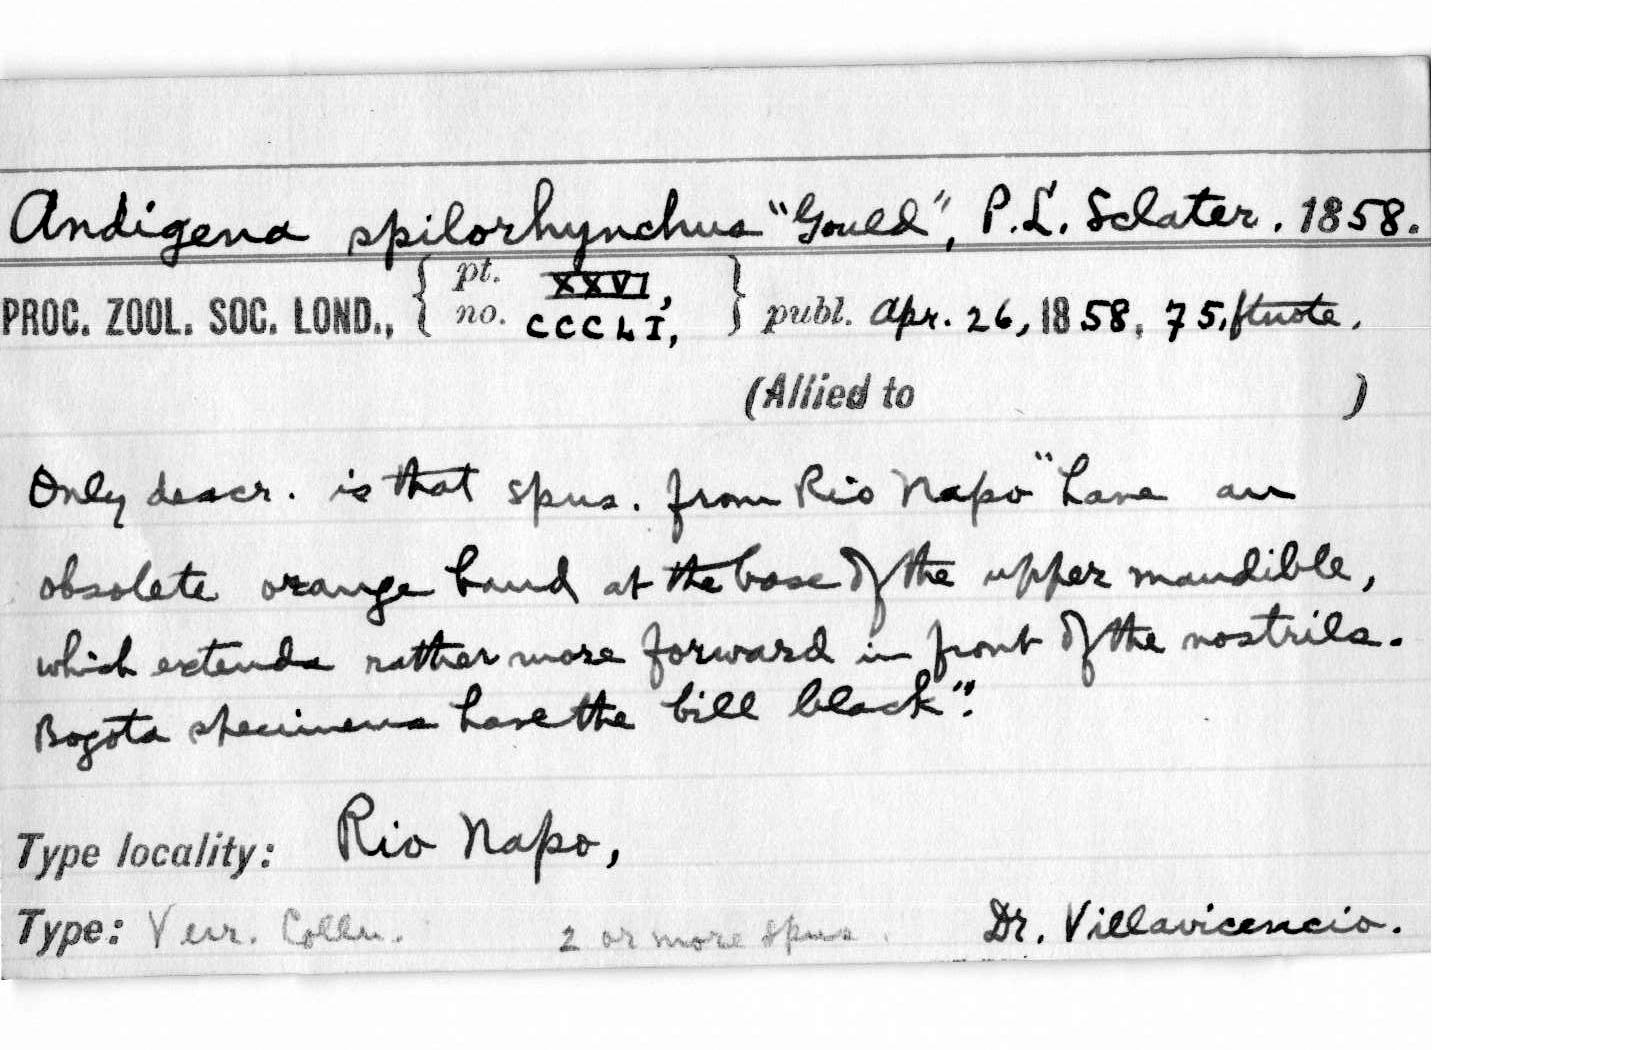 Andigena spilorhynchus "Gould", P.L. Sclater. 1858.
PROC. ZOOL. SOC. LOND., { pt. XXVI, no. CCCLI, } publ. Apr. 26, 1858, 75, ftnote.
(Allied to )
Only descr. is that spus. from Rio Napo "have an
obsolete orange band at the base of the upper mandible,
which extends rather more forward in front of the nostrils.
Bogota specimens have the bill black".
Type locality: Rio Napo,
Type: Verr. Colln. 2 or more spus. Dr. Villavicencio.